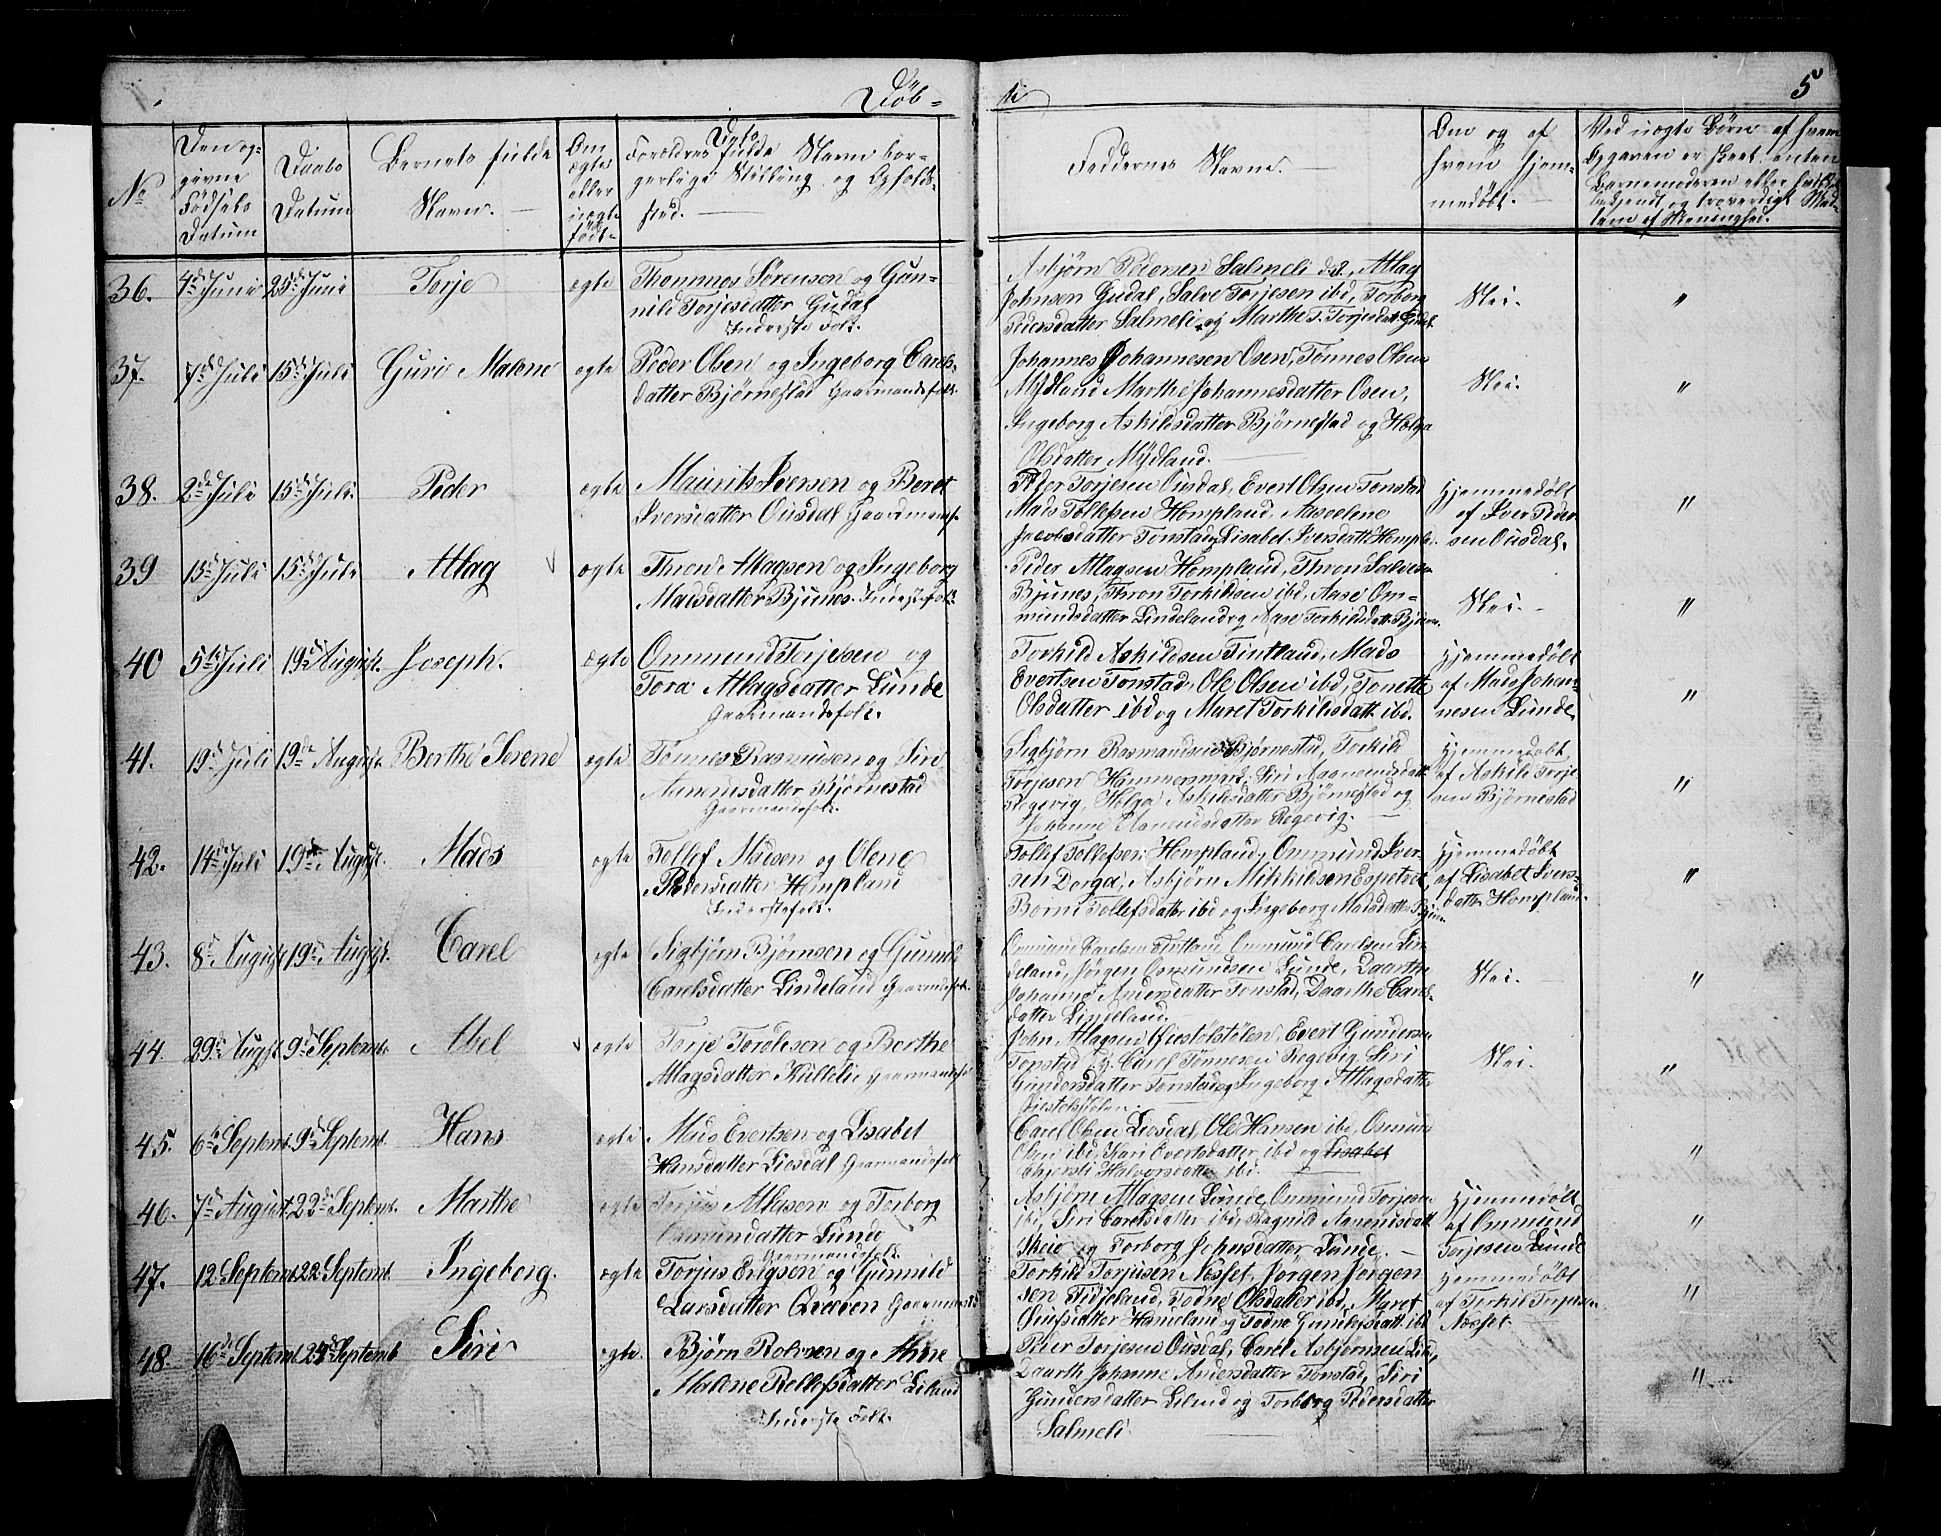 Døb-
te
5
No
Den op-
givne
Fødsels
Datum
Daabs
Datum
Barnets fulde
Navn.
Om
ægte
eller
uægte
født
Forældres fulde Navn bor-
gerlige Stilling og Opholds-
sted.
Faddernes Navne.
Om og af
hvem hjem-
medøbt.
Ved uægte Børn af hvem
Opgaven er skeet enten
Barnemoderen eller
bekjendt og troværdigt Med-
lem af Menighed.
36. 4de Juni 25de Juni Torje ægte
Thommes Sørensen og Gun-
nild Torjesdatter Gudal
Inderste Folk.
Asbjørn Pedersen Salmeli Atlag
Johnsen Gudal, Salve Torjesen ibd, Torborg
Pedersdatter Salmeli og Marthe T. Torjesdatt. Gudal
Nei. "
37. 7de Juli 15de Juli Guri Malene ægte
Peder Olsen og Ingeborg Carls-
datter Bjørnestad Gaardmandsfolk
Johannes Johannesen Osen, Tønnes Olsen
Mydland Marthe Johannesdatter Osen,
Ingeborg Askildsdatter Bjørnestad og Helga
Olsdatter Mydland.
Nei. "
38. 2de Juli 15de Juli Peder ægte
Maurits Iversen og Beret
Iversdatter Ousdal Gaardmandsf.
Peder Torjesen Ousdal, Evert Olsen Tonstad
Mads Tollefsen Hompland, Aaselene
Jacobsdatter Tonstad, Lisabet Iversdatt. Hompla.
Hjemmedøbt
af Iver Peder-
sen Ousdal.
"
39 13de Juli 15de Juli Atlag ægte
Thron Atlagsen og Ingeborg
Madsdatter Bjunes. Inderstefolk
Peder Atlagsen Hompland, Thron Salvesen
Bjunes, Thron Torkildsen ibd, Aase Om-
mundsdatter Lindeland og Aase Torkildsdatt. Bjunes.
Nei. "
40 5te Juli 19de August. Joseph. Ægte
Ommund Torjesen og
Tora Atlagsdatter Lunde
Gaarmandsfolk.
Torkild Askildsen Tintland, Mads
Evertsen Tonstad, Ole Olsen ibd, Tonette
Olsdatter ibd og Maret Torkildsdatt. ibd.
Hjemmedøbt
af Mads Johan-
nesen Lunde.
"
41. 19de Juli 19de August. Berthe Serene ægte
Tønnes Rasmusen og Siri
datter Bjørnestad
Gaarmandsfolk.
Sigbjørn Bjørnestad, Torkild
Torjesen Hammersmark, Siri
Regevig, Helga Askildsdatter Bjørnestad og
Johanne Regevig.
Hjemmedøbt
af Askild Torje-
sen Bjørnestad
"
42. 14de Juli 19de August. Mads ægte
Tollef Madsen og Olene
Pedersdatter Hompland
Inderstefolk.
Tollef Tollefsen Hompland, Ommund Iver-
sen Dorga, Asbjørn Mikkilsen Espetvet
Borni Tollefsdatter ibd og Ingeborg Madsdatter
Hjemmedøbt
af Lisabet Ivers-
datter Hompland.
"
43. 8de August 19de August. Carel ægte
Sigbjørn Bjørnsen og Gunnild
Carlsdatter Lindeland Gaarmdsfolk.
Ommund Carelsen Tintland, Ommund Carelsen Lin-
deland, Jørgen Osmundsen Lunde, Daarthe
Johanne Andersdatter Tonstad, Daarthe Carels-
datter Lindeland.
Nei. "
44. 29de August 9de Septembr. Abel ægte
Torje Torolvsen og Berthe
Atlagsdatter Kulleli Gaarmandsfol
John Atlagsen Øiestølstølen, Evert Gundersen
Tonstad, Carel Tønnesen Regevig, Siri
Gundersdatter Tonstad og Ingeborg Atlagsdatter
Øiestølstølen.
Nei. "
45. 6te Septemb. 9de Septemb. Hans ægte
Mads Evertsen og Lisabet
Hansdatter Liosdal Gaarmandsfolk
Carel Olsen Liosdal, Ole Hansen ibd, Osmund
Olsen ibd, Kari Evertsdatter ibd og Lisabet
Chjersti Halvorsdatter ibd.
"
46. 7de August 22de Septemb. Marthe ægte
Torjus Atlasen og Torborg
datter Lunde
Gaarmandsfolk.
Asbjørn Atlagsen Lunde, Ommund Torjesen
ibd, Siri Carelsdatter ibd, Ragnild
Skeie og Torborg Johnsdatter Lunde.
Hjemmedøbt
af Ommund
Torjesen Lunde
"
47. 12 Septemb. 22 Septemb. Ingeborg. ægte
Torjus Erigsen og Gunnild
Larsdatter Qvæven Gaarmands
Torkild Torjusen Næsset, Jørgen Jørgen-
sen Fidjeland, Todne Olsdatter ibd, Maret
datter Haneland og Todne Gundersdatt. ibd
Hjemmedøbt
af Torkil Torjusen
Næsset.
"
48. 16de Septemb. 24de Septemb. Siri ægte.
Bjørn Rolvsen og Anne
Malene Rellefsdatter Liland
Inderste Folk.
Peder Torjesen Ousdal, Carel Asbjørnsen Lid,
Daarth Johanne Andersdatter Tonstad, Siri
Gundersdatter Lilund og Torborg Pedersdatter
Salmeli
"